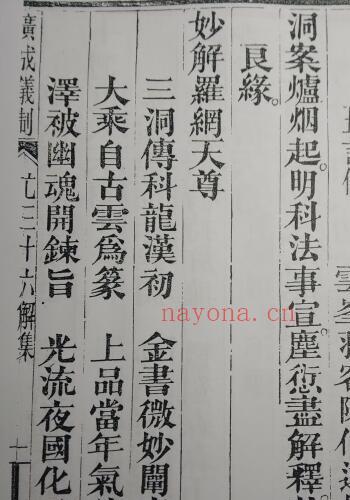 洞案爐烟起。明科法事宣。塵愆盡解釋。
良緣。
妙解羅網天尊
三洞傳科龍漢初 金書微妙闡
大乘自古雲爲篆 上品當年氣
澤被幽魂開鍊旨 光流夜國化
廣成義制 亡三十六解集 一
nayona.cn